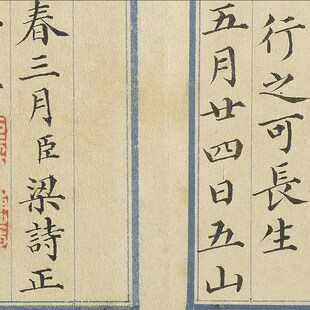 行之可長生
五月廿四日五山
春三月臣梁詩正